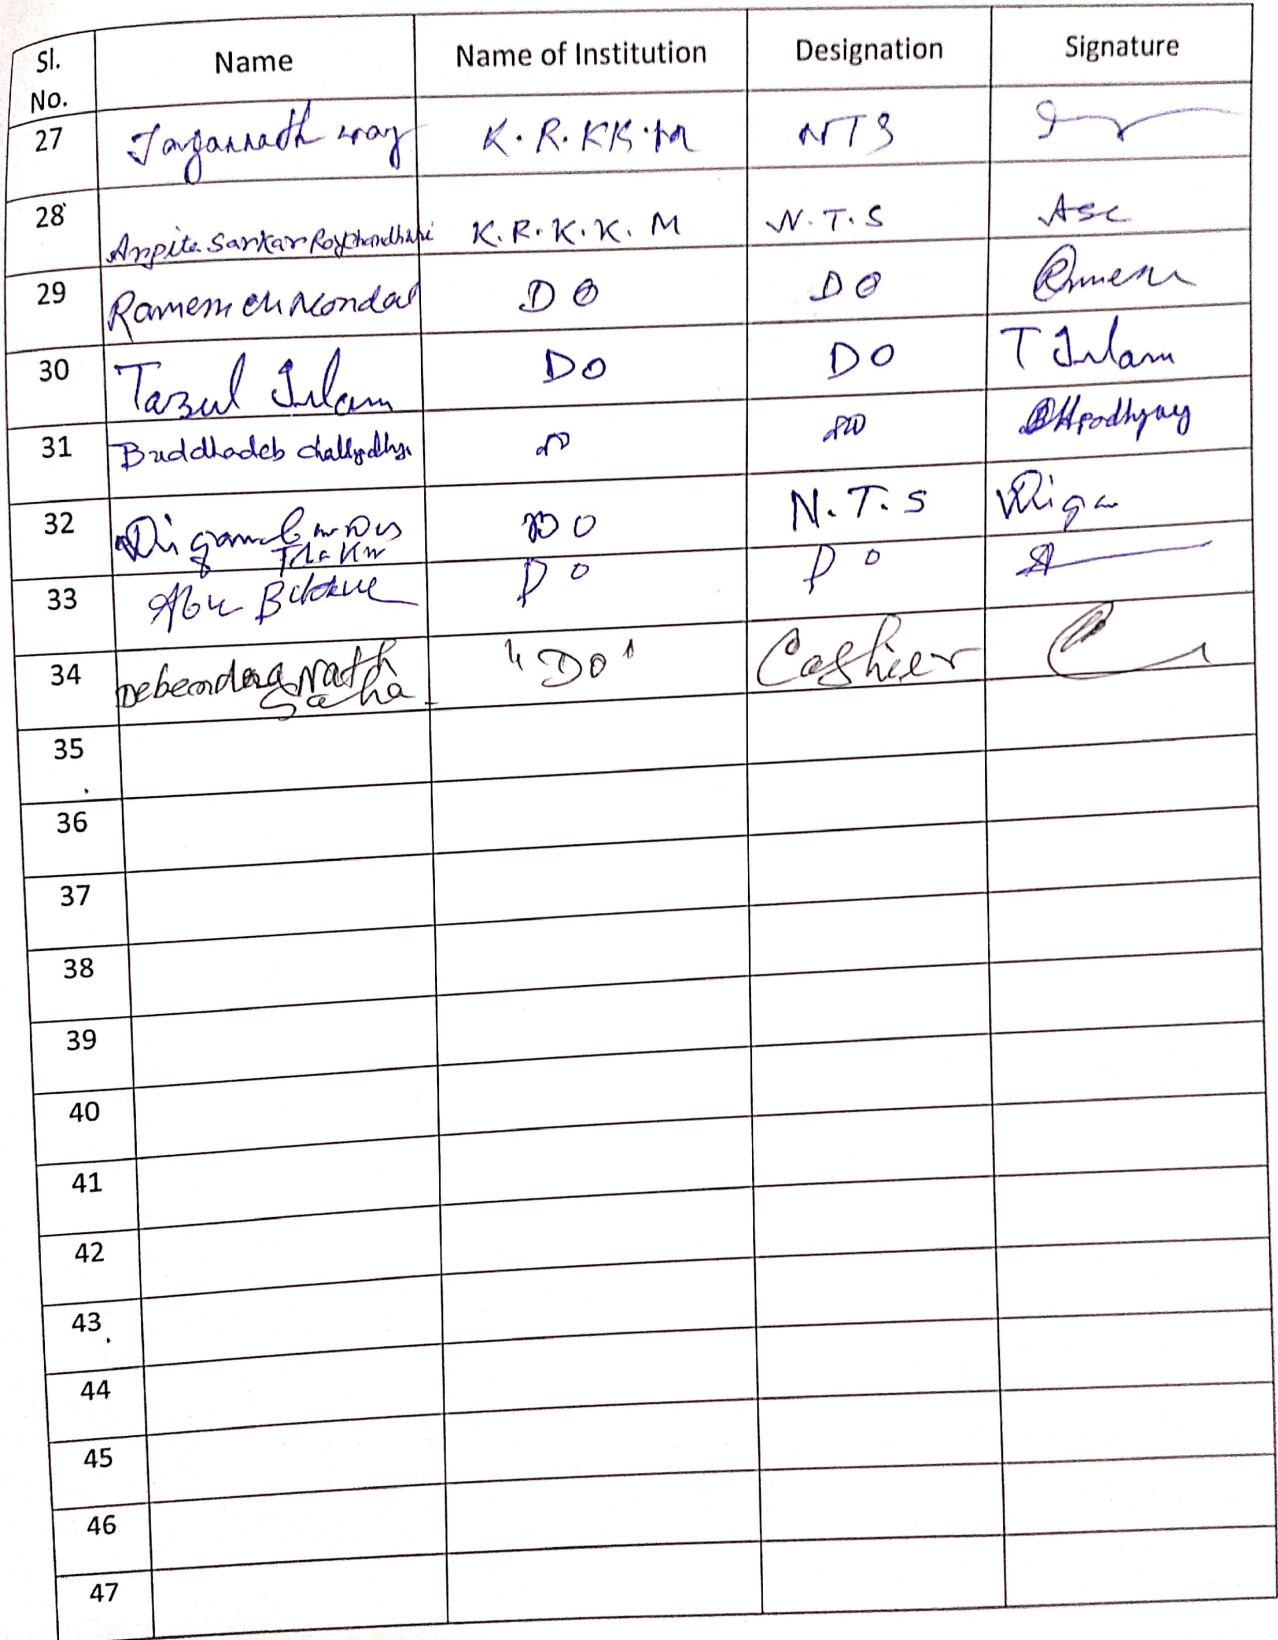 Sl. No. Name Name of Institution Designation Signature
27 Jagannath K.R.KK.M NTS
28 Arpita Sarkar Roychoudhuri K.R.K.K.M N.T.S ASC
29 Ramesh Ch Mondal DO DO Ramesh
30 Tazul Islam DO DO T Islam
31 Buddhadeb DO DO
32 DO N.T.S
Thakur
33 Abu DO DO
34 Debendra Nath "DO" Cashier
Saha
35
36
37
38
39
40
41
42
43
44
45
46
47